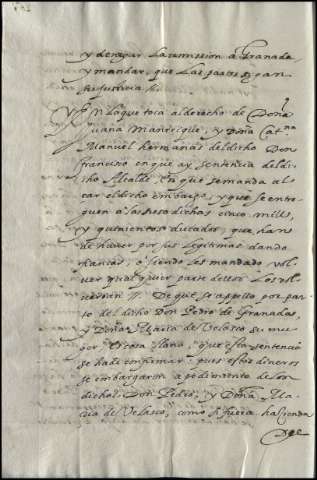 y denegar la remission a Granada
y mandar, que las partes sigan
su justicia &c.
En lo que toca al derecho de Doña
Juana Manrrique, y Doña Cat.na
Manuel hermanas del dicho Don
Francisco en que ay sentencia del di
cho Alcalde, en que se manda al
çar el dicho embargo, y que se entre
guen a las susodichas cinco mill,
y quinientos ducados, que han
de haver por sus legitimas dando
fianças, o siendo les mandado vol
ver qualquier parte dellos los vol
veran
De que se appelló por par
te del dicho Don Pedro de Granada,
y Doña Maria de Velasco su mu
ger Es cosa llana, que esta sentencia
se ha de confirmar pues estos dineros
se embargaron a pedimiento de los
dichos Don Pedro, y Doña Ma
ria de Velasco, como si fuera hazienda
que